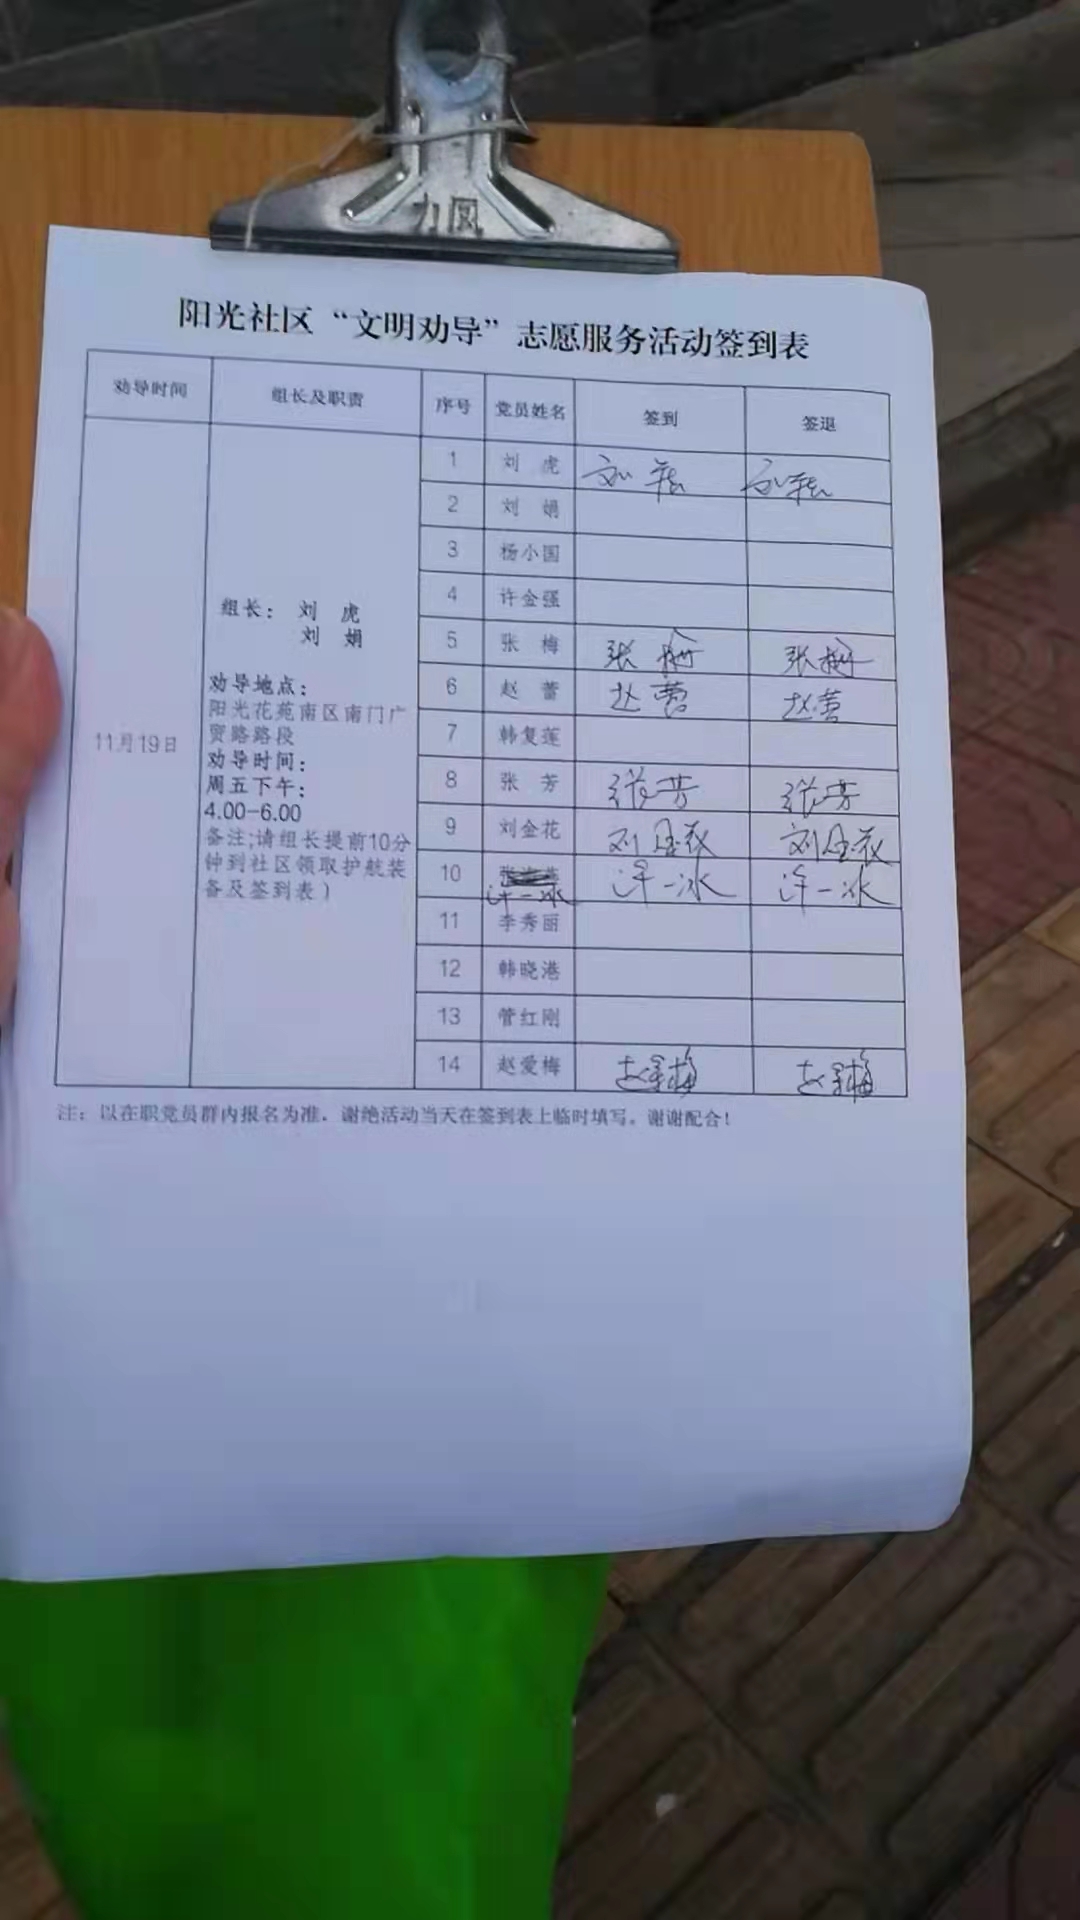 力风
阳光社区“文明劝导”志愿服务活动签到表
劝导时间 组长及职责 序号 党员姓名 签到 签退
11月19日
组长： 刘 虎
刘 娟
劝导地点：
阳光花苑南区南门广
贸路路段
劝导时间：
周五下午：
4.00-6.00
备注;请组长提前10分
钟到社区领取护航装
备及签到表）
1 刘 虎 刘虎 刘虎
2 刘 娟
3 杨小国
4 许金强
5 张 梅 张梅 张梅
6 赵 蕾 赵蕾 赵蕾
7 韩复莲
8 张 芳 张芳 张芳
9 刘金花 刘金花 刘金花
10 许一冰 许一冰 许一冰
11 李秀丽
12 韩晓港
13 管红刚
14 赵爱梅 赵爱梅 赵爱梅
注：以在职党员群内报名为准，谢绝活动当天在签到表上临时填写。谢谢配合！